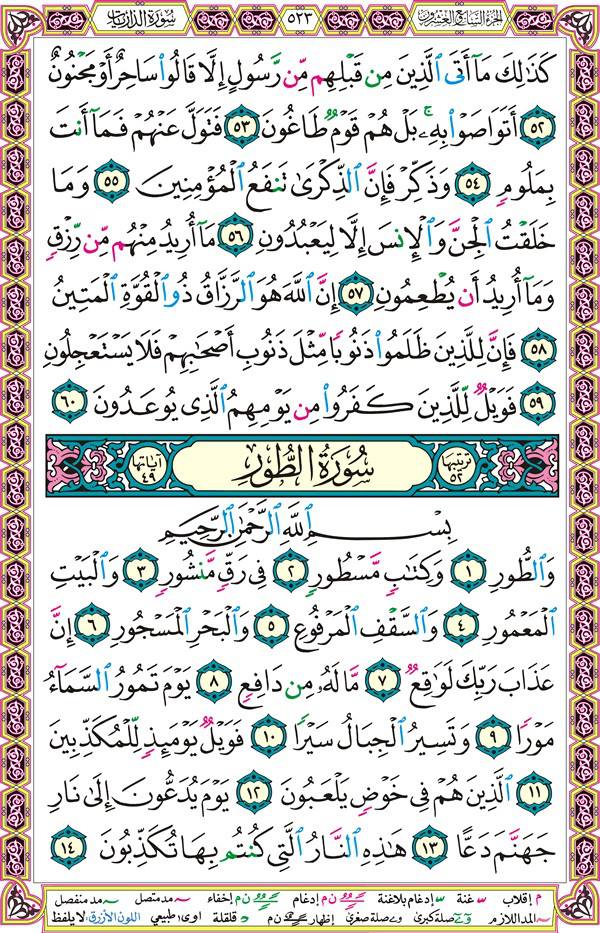 سورة الذاريات ٥٢٣ الجزء السابع والعشرون
كَذَٰلِكَ مَآ أَتَى ٱلَّذِينَ مِن قَبْلِهِم مِّن رَّسُولٍ إِلَّا قَالُوا۟ سَاحِرٌ أَوْ مَجْنُونٌ
٥٢ أَتَوَاصَوْا۟ بِهِۦ ۚ بَلْ هُمْ قَوْمٌ طَاغُونَ ٥٣ فَتَوَلَّ عَنْهُمْ فَمَآ أَنتَ
بِمَلُومٍ ٥٤ وَذَكِّرْ فَإِنَّ ٱلذِّكْرَىٰ تَنفَعُ ٱلْمُؤْمِنِينَ ٥٥ وَمَا
خَلَقْتُ ٱلْجِنَّ وَٱلْإِنسَ إِلَّا لِيَعْبُدُونِ ٥٦ مَآ أُرِيدُ مِنْهُم مِّن رِّزْقٍ
وَمَآ أُرِيدُ أَن يُطْعِمُونِ ٥٧ إِنَّ ٱللَّهَ هُوَ ٱلرَّزَّاقُ ذُو ٱلْقُوَّةِ ٱلْمَتِينُ
٥٨ فَإِنَّ لِلَّذِينَ ظَلَمُوا۟ ذَنُوبًا مِّثْلَ ذَنُوبِ أَصْحَٰبِهِمْ فَلَا يَسْتَعْجِلُونِ
٥٩ فَوَيْلٌ لِّلَّذِينَ كَفَرُوا۟ مِن يَوْمِهِمُ ٱلَّذِى يُوعَدُونَ ٦٠
ترتيبها ٥٢ سُورَةُ ٱلطُّورِ آياتها ٤٩
بِسْمِ ٱللَّهِ ٱلرَّحْمَٰنِ ٱلرَّحِيمِ
وَٱلطُّورِ ١ وَكِتَٰبٍ مَّسْطُورٍ ٢ فِى رَقٍّ مَّنشُورٍ ٣ وَٱلْبَيْتِ
ٱلْمَعْمُورِ ٤ وَٱلسَّقْفِ ٱلْمَرْفُوعِ ٥ وَٱلْبَحْرِ ٱلْمَسْجُورِ ٦ إِنَّ
عَذَابَ رَبِّكَ لَوَٰقِعٌ ٧ مَّا لَهُۥ مِن دَافِعٍ ٨ يَوْمَ تَمُورُ ٱلسَّمَآءُ
مَوْرًا ٩ وَتَسِيرُ ٱلْجِبَالُ سَيْرًا ١٠ فَوَيْلٌ يَوْمَئِذٍ لِّلْمُكَذِّبِينَ
١١ ٱلَّذِينَ هُمْ فِى خَوْضٍ يَلْعَبُونَ ١٢ يَوْمَ يُدَعُّونَ إِلَىٰ نَارِ
جَهَنَّمَ دَعًّا ١٣ هَٰذِهِ ٱلنَّارُ ٱلَّتِى كُنتُم بِهَا تُكَذِّبُونَ ١٤
م إقلاب غنة إدغام بلاغنة ن م إدغام ن م إخفاء مد متصل مد منفصل
المد اللازم صلة كبرى صلة صغرى إظهار ن م قلقلة اوى طبيعي اللون الأزرق: لا يلفظ